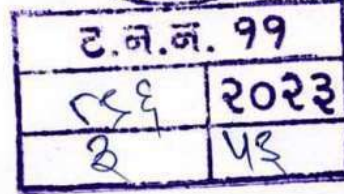 ट.न.न. ११
२०२३
३ ५३